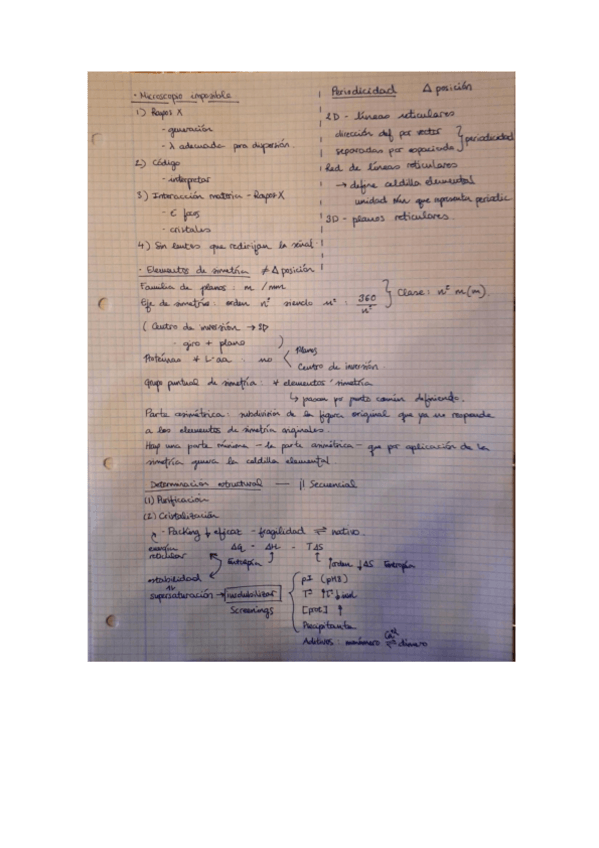 · Microscopio imposible
1) Rayos X
- generación
- λ adecuada para dispersión.
2) Código
- interpretar
3) Interacción materia - Rayos X
- cristales
4) Sin lentes que redirijan la señal.
Periodicidad Δ posición
2D - líneas reticulares
dirección def por vector
separadas por espaciado } periodicidad
Red de líneas reticulares
→ define celdilla elemental
unidad mín que apresenta
3D - planos reticulares.
· Elementos de simetría ≠ Δ posición
Familia de planos : m / mm
Eje de simetría : orden nº siendo nº : 360/nº } Clase : nº m(m).
( Centro de inversión →
- giro + plano )
Proteínas * L-aa : no < Planos
Centro de inversión.
Grupo puntual de simetría : elementos simetría
↳ pasan por punto común definiendo.
Parte asimétrica : subdivisión de la figura original que ya no responde
a los elementos de simetría originales.
Hay una parte mínima - la parte asimétrica - que por aplicación de la
simetría genera la celdilla elemental
Determinación estructural — Secuencial
(1) Purificación
(2) Cristalización
- Packing ↓ eficaz - fragilidad ⇌ nativo.
energía reticular ΔG - ΔH - TΔS
Entalpía ↑orden ↓ΔS Entropía
estabilidad
supersaturación → modulabilizar
Screenings
pI (pH)
Tª
[prot] ↑
Precipitante
Aditivos : monómero ⇌ dímero